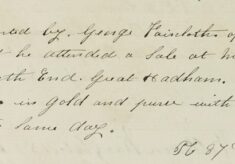 by George Faircloth of
he attended a Sale at
End. Great Hadham.
in Gold and purse with
Same day.